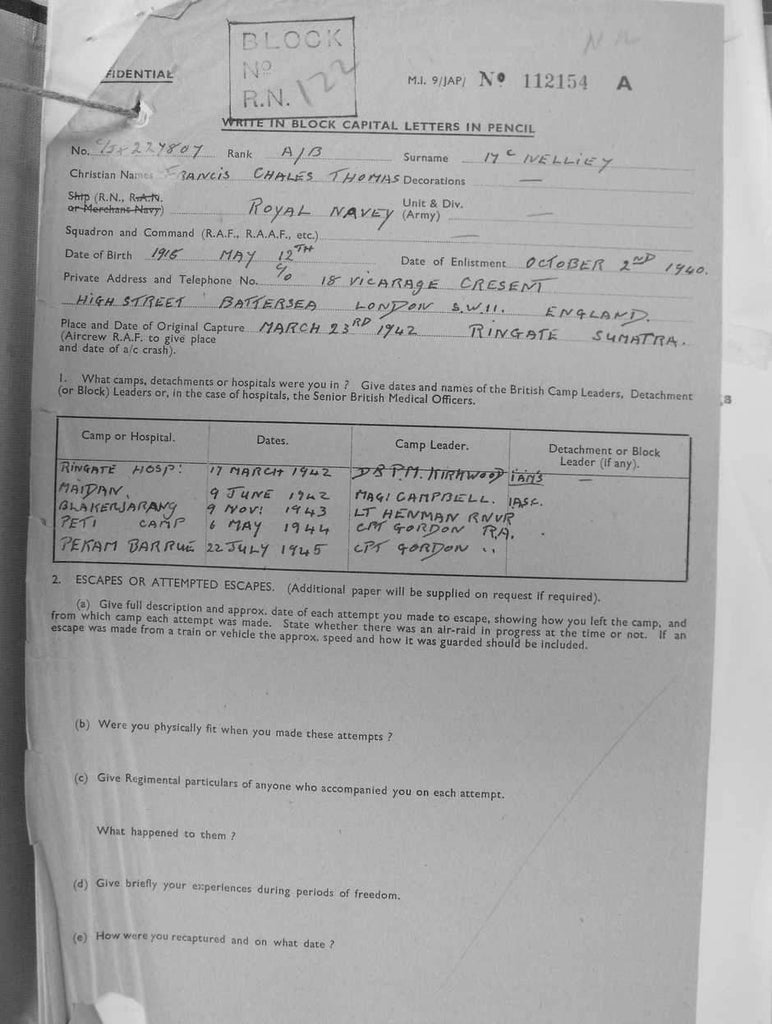 BLOCK
Nº
R.N. 122
FIDENTIAL
M.I. 9/JAP/ Nº 112154 A
WRITE IN BLOCK CAPITAL LETTERS IN PENCIL
No. C/JX 227807 Rank A/B Surname Mc NELLIEY
Christian Names FRANCIS CHALES THOMAS Decorations —
Ship (R.N., R.A.N. or Merchant Navy) ROYAL NAVEY Unit & Div. (Army) —
Squadron and Command (R.A.F., R.A.A.F., etc.) —
Date of Birth 1916 MAY 12TH Date of Enlistment OCTOBER 2ND 1940.
Private Address and Telephone No. C/O 18 VICARAGE CRESENT
HIGH STREET BATTERSEA LONDON S.W.11. ENGLAND.
Place and Date of Original Capture MARCH 23RD 1942 RINGATE SUMATRA.
(Aircrew R.A.F. to give place
and date of a/c crash).
1. What camps, detachments or hospitals were you in ? Give dates and names of the British Camp Leaders, Detachment
(or Block) Leaders or, in the case of hospitals, the Senior British Medical Officers.
Camp or Hospital. Dates. Camp Leader. Detachment or Block Leader (if any).
RINGATE HOSP: 17 MARCH 1942 DR P.M. KIRKWOOD IAMS —
MAIDAN. 9 JUNE 1942 MAGI CAMPBELL. IASC.
BLAKERJARANG 9 NOV: 1943 LT HENMAN RNVR
PETI CAMP 6 MAY 1944 CPT GORDON R.A.
PEKAM BARRUE 22 JULY 1945 CPT GORDON ..
2. ESCAPES OR ATTEMPTED ESCAPES. (Additional paper will be supplied on request if required).
(a) Give full description and approx. date of each attempt you made to escape, showing how you left the camp, and
from which camp each attempt was made. State whether there was an air-raid in progress at the time or not. If an
escape was made from a train or vehicle the approx. speed and how it was guarded should be included.
(b) Were you physically fit when you made these attempts ?
(c) Give Regimental particulars of anyone who accompanied you on each attempt.
What happened to them ?
(d) Give briefly your experiences during periods of freedom.
(e) How were you recaptured and on what date ?